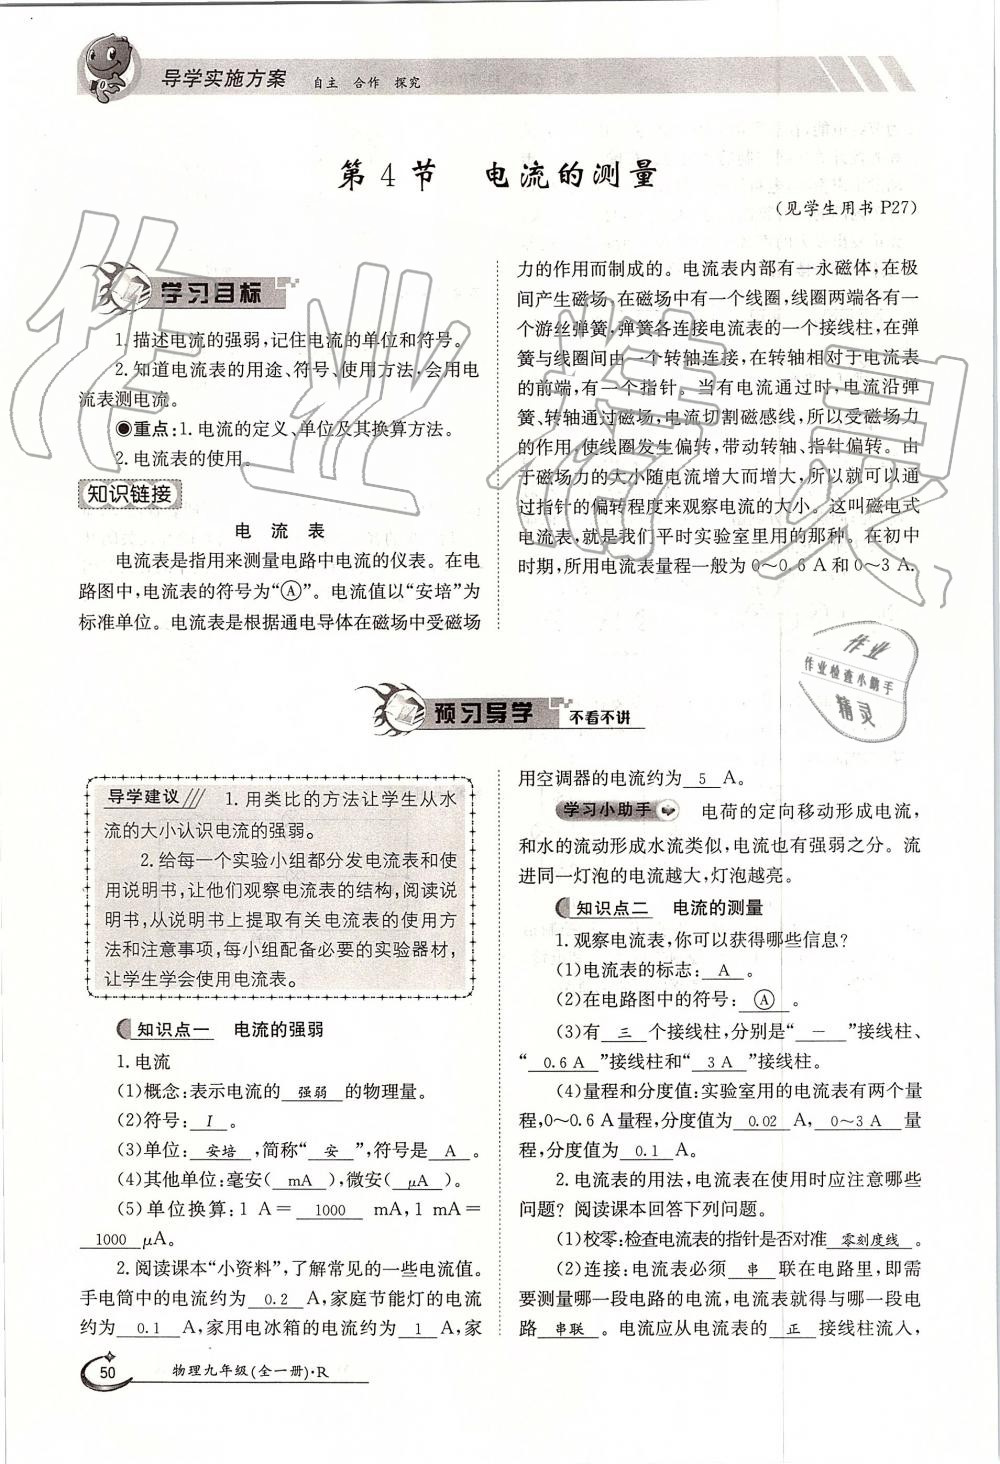 导学实施方案 自主 合作 探究
第4节 电流的测量
(见学生用书 P27)
学习目标
1. 描述电流的强弱,记住电流的单位和符号。
2. 知道电流表的用途、符号、使用方法,会用电
流表测电流。
◉重点:1. 电流的定义、单位及其换算方法。
2. 电流表的使用。
知识链接
电 流 表
电流表是指用来测量电路中电流的仪表。在电
路图中,电流表的符号为“Ⓐ”。电流值以“安培”为
标准单位。电流表是根据通电导体在磁场中受磁场
力的作用而制成的。电流表内部有一永磁体,在极
间产生磁场,在磁场中有一个线圈,线圈两端各有一
个游丝弹簧,弹簧各连接电流表的一个接线柱,在弹
簧与线圈间由一个转轴连接,在转轴相对于电流表
的前端,有一个指针。当有电流通过时,电流沿弹
簧、转轴通过磁场,电流切割磁感线,所以受磁场力
的作用,使线圈发生偏转,带动转轴、指针偏转。由
于磁场力的大小随电流增大而增大,所以就可以通
过指针的偏转程度来观察电流的大小。这叫磁电式
电流表,就是我们平时实验室里用的那种。在初中
时期,所用电流表量程一般为 0~0.6 A 和 0~3 A.
作业精灵
作业
作业检查小助手
精灵
预习导学 不看不讲
导学建议 1. 用类比的方法让学生从水
流的大小认识电流的强弱。
2. 给每一个实验小组都分发电流表和使
用说明书,让他们观察电流表的结构,阅读说
明书,从说明书上提取有关电流表的使用方
法和注意事项,每小组配备必要的实验器材,
让学生学会使用电流表。
知识点一 电流的强弱
1. 电流
(1)概念:表示电流的 强弱 的物理量。
(2)符号: I 。
(3)单位: 安培 ,简称“ 安 ”,符号是 A 。
(4)其他单位:毫安( mA ),微安( μA )。
(5)单位换算:1 A= 1000 mA,1 mA=
1000 μA。
2. 阅读课本“小资料”,了解常见的一些电流值。
手电筒中的电流约为 0.2 A,家庭节能灯的电流
约为 0.1 A,家用电冰箱的电流约为 1 A,家
用空调器的电流约为 5 A。
学习小助手 电荷的定向移动形成电流,
和水的流动形成水流类似,电流也有强弱之分。流
进同一灯泡的电流越大,灯泡越亮。
知识点二 电流的测量
1. 观察电流表,你可以获得哪些信息?
(1)电流表的标志: A 。
(2)在电路图中的符号: Ⓐ 。
(3)有 三 个接线柱,分别是“ － ”接线柱、
“ 0.6 A ”接线柱和“ 3 A ”接线柱。
(4)量程和分度值:实验室用的电流表有两个量
程,0~0.6 A 量程,分度值为 0.02 A, 0~3 A 量
程,分度值为 0.1 A。
2. 电流表的用法,电流表在使用时应注意哪些
问题? 阅读课本回答下列问题。
(1)校零:检查电流表的指针是否对准 零刻度线 。
(2)连接:电流表必须 串 联在电路里,即需
要测量哪一段电路的电流,电流表就得与哪一段电
路 串联 。电流应从电流表的 正 接线柱流入,
50 物理九年级(全一册)·R